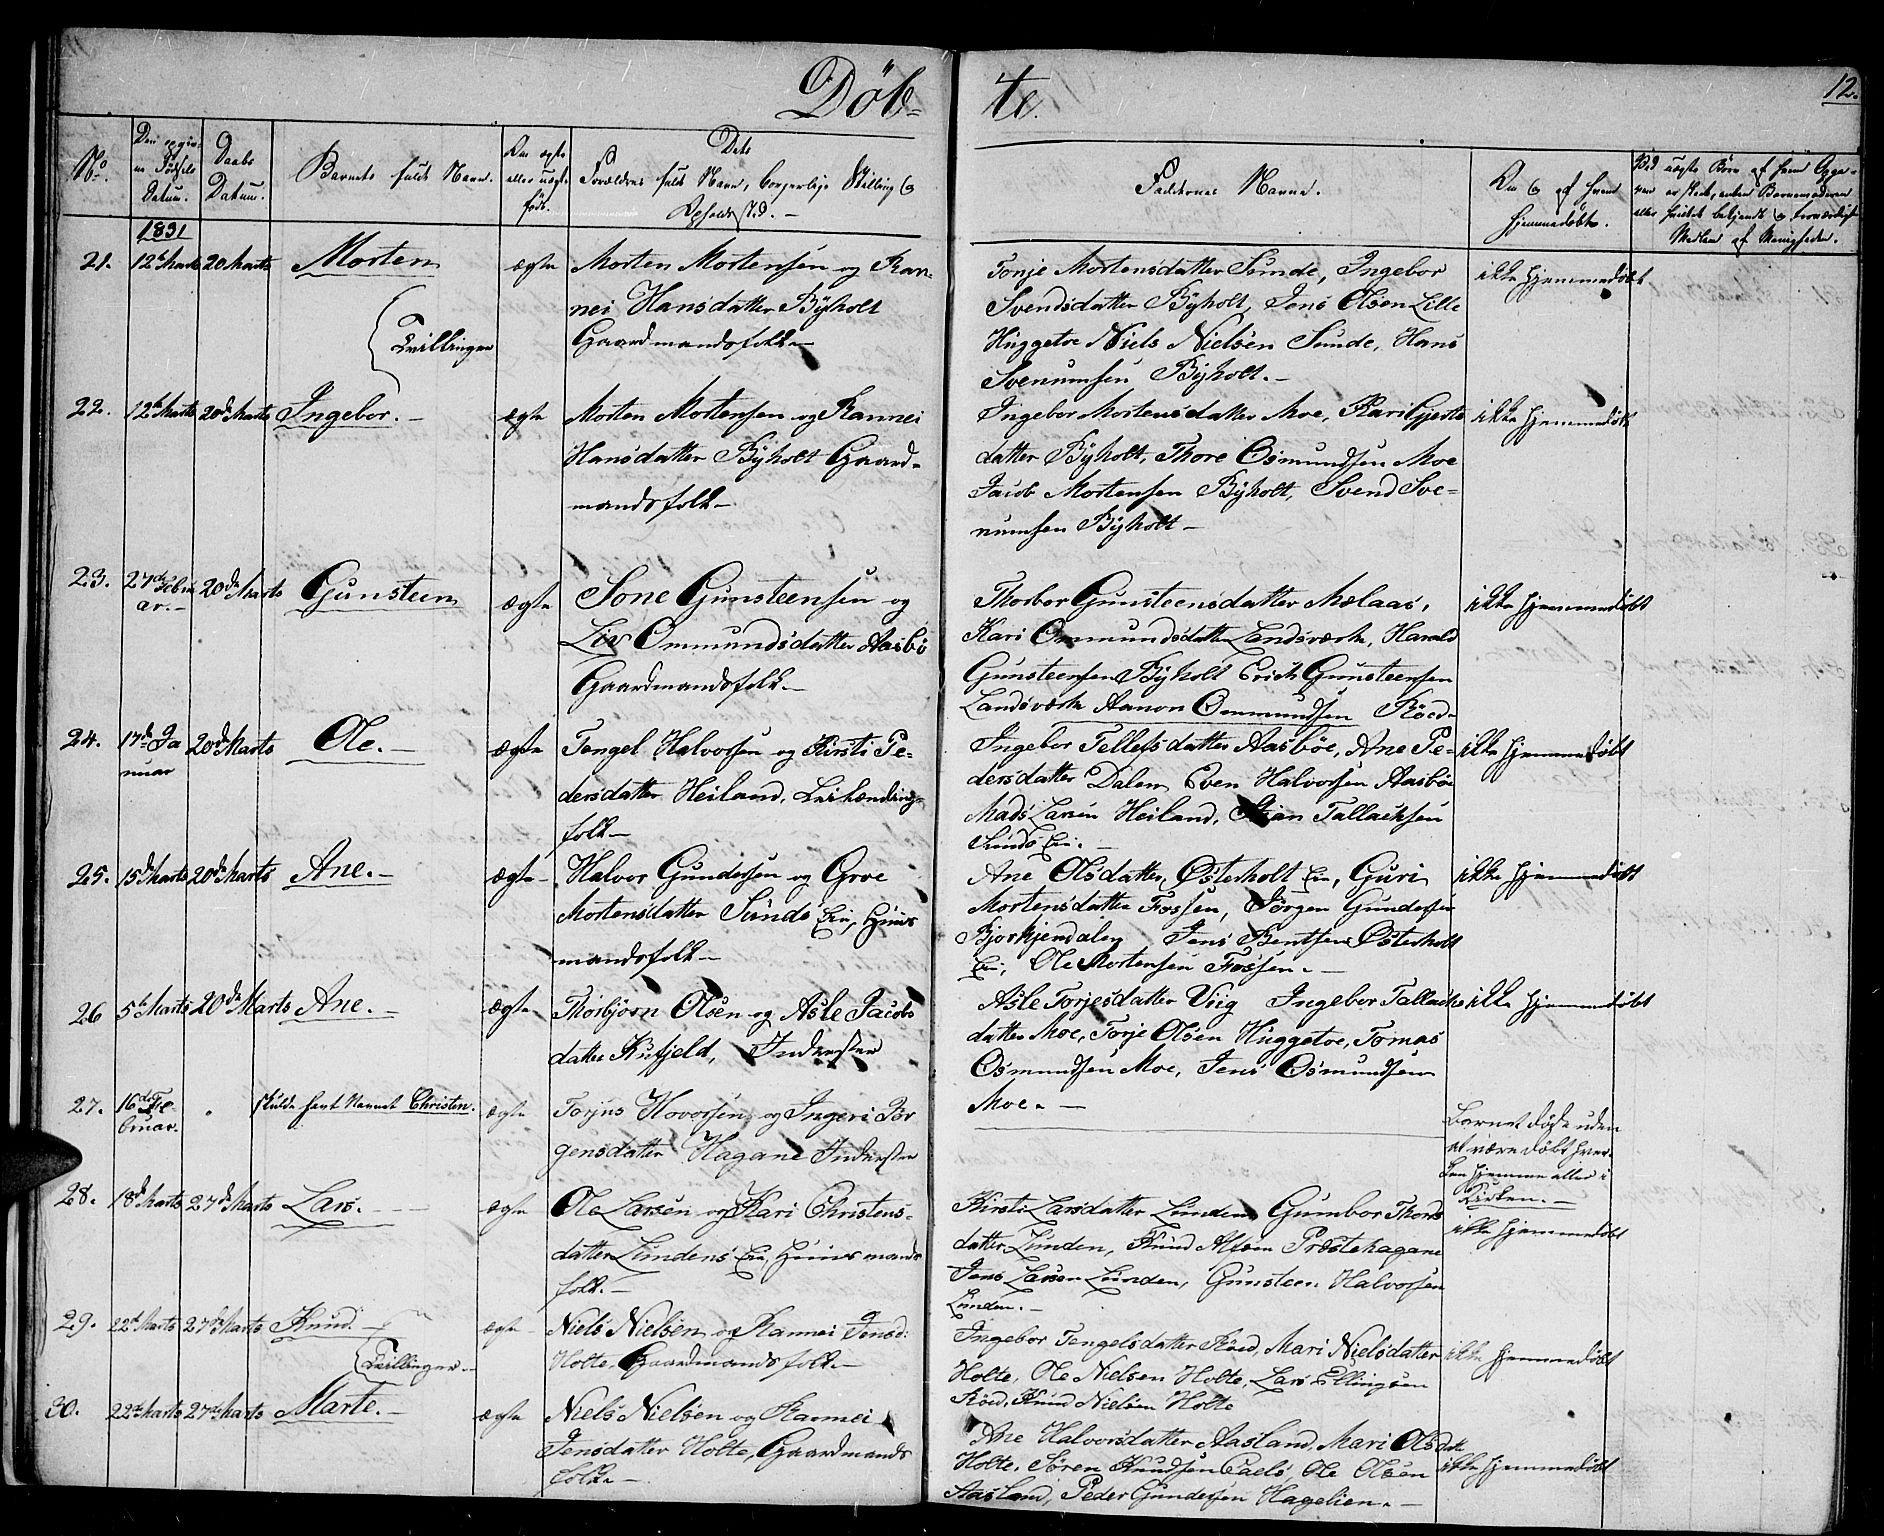 Døb-
te.
12.
No.
Den opgiv-
ne Fødsels
Datum.
Daabs
Datum.
Barnets fulde Navn.
Om ægte
eller uægte
født.
Dets
Forældres fulde Navn, borgerlige Stilling og
Opholdssted. -
Faddernes Navne.
Om og af hvem
hjemmedøbt.
Ved uægte Børn af hvem Opga-
ven er skeet, enten Barnemoderen
eller
Medlem af Menigheden.
1831
21. 12te Marts 20 Marts Morten ægte Morten Mortensen og Ran-
nei Hansdatter Byholt
Gaardmandsfolk-
Tvillinger
Tonje Mortensdatter Sunde, Ingebor
Svendsdatter Byholt, Jens Olsen Lille
Huggetoe Niels Nielsen Sunde, Hans
Svenumsen Byholt. -
ikke hjemmedøbt
22. 12te Marts 20de Marts Ingebor. - ægte Morten Mortensen og Rannei
Hansdatter Byholt Gaard-
mandsfolk-
Ingebor Mortensdatter Moe, Kari Gjerts
datter Byholt, Thore Osmundsen Moe
Jacob Mortensen Byholt, Svend Sve-
numsen Byholt-
ikke hjemmedøbt
23. 27de Febru
ar.- 20de Marts Gunsteen ægte Sone Gunsteensen og
Liv Ommundsdatter Aasbö
Gaardmandsfolk-
Thorbor Gunsteensdatter Mælaas,
Kari Ommundsdatter Landsværk, Harald
Gunsteensen Byholt Erich Gunsteensen
Landsværk Aanon Ommundsen Röed-
ikke hjemmedøbt
24. 17de Ja
nuar 20de Marts Ole. - ægte Tengel Halvorsen og Kirsti Pe-
dersdatter Heiland, Leilændings-
folk-
Ingebor Tellefsdatter Aasbøe, Ane Pe-
dersdatter Dalen Even Halvorsen Aasbøe
Mads Larsen Heiland, Stian Tallachsen
Sunds Eie. -
ikke hjemmedøbt
25. 15de Marts 20de Marts Ane. - ægte- Halvor Gundersen og Groe
Mortensdatter Sunds Eie, Huus
mandsfolk-
Ane Olsdatter Østerholt Eie, Guri
Mortensdatter Fossen, Jørgen Gundersen
Bjorkjendalen Jens Bentsen Østerholt
Eie, Ole Mortensen Fossen. -
ikke hjemmedøbt
26 5te Marts 20de Marts Ane. - ægte- Thorbjörn Olsen og Asle Jacobs
datter Kufjeld, Inderster
Asle Torjesdatter Viig Ingebor Tallachs
datter Moe, Torje Olsen Huggetoe, Tomas
Osmundsen Moe, Jens Osmundsen
Moe. -
ikke hjemmedøbt
27. 16de Fe-
bruar. skulde havt Navnet Christen. ægte Torjus Hovorsen og Ingeri Jör
gensdatter Hagane Inderster
Barnet døde uden
at være døbt hver-
ken hjemme eller i
Kirken. -
28. 18de Marts 27de Marts Lars. - ægte Ole Larsen og Kari Christens-
datter Lundens Eie, Huusmands
folk. -
Kirsti Larsdatter Lunden Gumbor Thors
datter Lunden, Knud Alfsen Præstehagane
Jens Larsen Lunden, Gunsteen Halvorsen
Lunden. -
ikke hjemmedøbt
29. 22de Marts 27de Marts Knud. - ægte Niels Nielsen og Rannei Jensd:
Holte, Gaardmandsfolk-
Tvillinger-
Ingebor Tengelsdatter Röed, Mari Nielsdatter
Holte, Ole Nielsen Holte, Lars Ellingsen
Röed, Knud Nielsen Holte
ikke hjemmedøbt
30. 22de Marts 27de Marts Marte. - ægte Niels Nielsen og Rannei
Jensdatter Holte, Gaardmands
folk-
Ane Halvorsdatter Aasland, Mari Olsdatter
Holte, Sören Knudsen Ole Olsen
Aasland, Peder Gundersen Hagelien. -
ikke hjemmedøbt